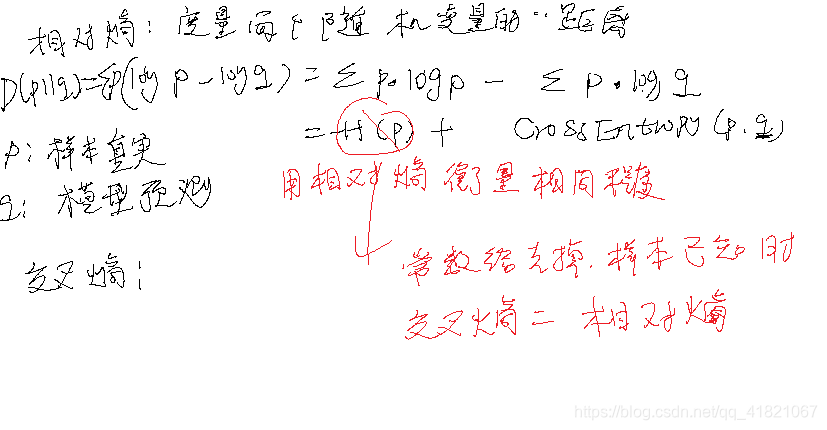 相对熵：度量两个随机变量的"距离
D(p||q)=Σp(log p - log q) = Σ p·log p - Σ p·log q
= -H(p) + CrossEntropy(p.q)
p：样本真实
q：模型预测
用相对熵衡量相同程度
常数给克掉.样本已知时
交叉熵 = 相对熵
交叉熵：
https://blog.csdn.net/qq_41821067